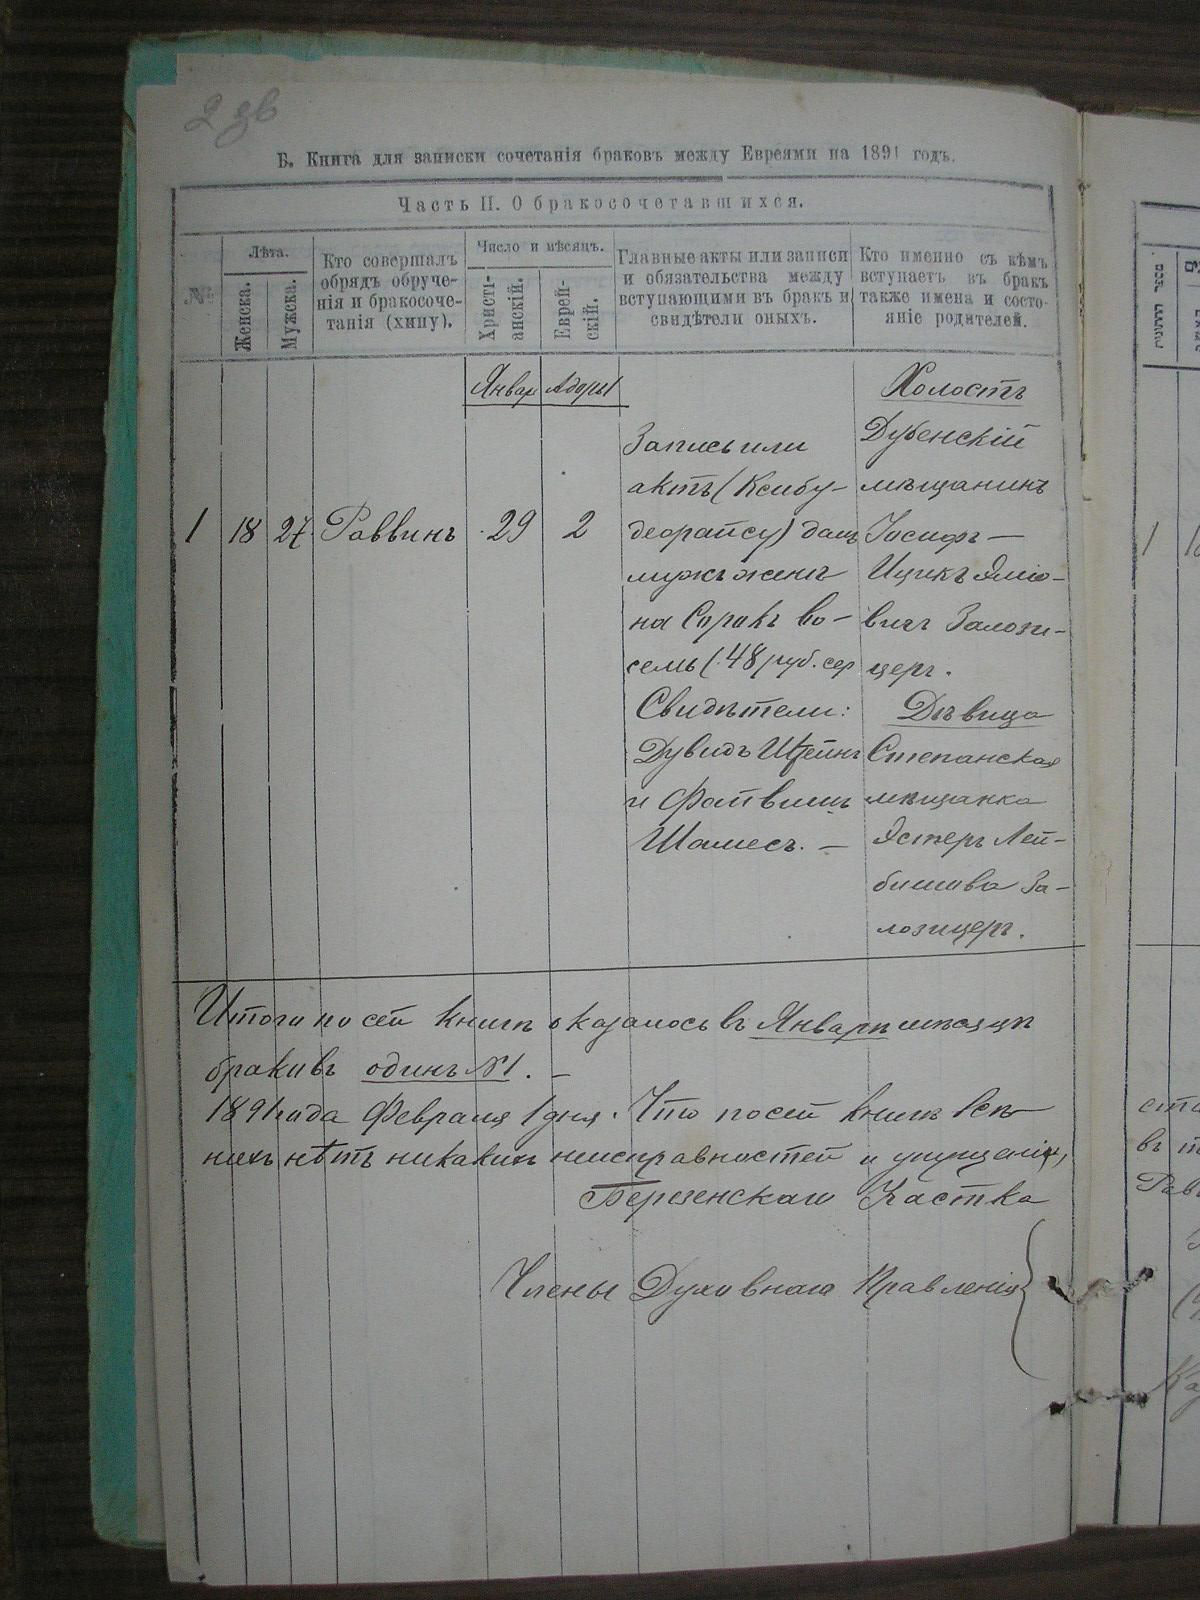 2 зв
Б. Книга для записки сочетанія браковъ между Евреями на 1891 годъ.
Часть II. О бракосочетавшихся.
№
Лѣта.
Женска.
Мужска.
Кто совершалъ
обрядъ обруче-
нія и бракосоче-
танія (хипу).
Число и мѣсяцъ.
Христі-
анскій.
Еврей-
скій.
Главные акты или записи
и обязательства между
вступающими въ бракъ и
свидѣтели оныхъ.
Кто именно съ кѣмъ
вступаетъ въ бракъ
также имена и состо-
яніе родителей.
1
18
27
Раввинъ
Январ
29
Адоръ 1
2
Запись или
актъ (Ксибу-
деорайсу) далъ
мужъ женѣ
на Сорокъ во-
семь (48 руб. сер
Свидѣтели:
Дувидъ Штейнъ
и Файвишъ
Шамесъ. —
Холостъ
Дубенскій
мѣщанинъ
Іосифъ —
Ицикъ
вичъ Залози-
церъ.
Дѣвица
Степанская
мѣщанка
Эстеръ Лей-
бишова За-
лозицеръ.
Итого по сей книгѣ оказалось въ Январѣ мѣсяцѣ
браковъ одинъ №1. —
1891 года Февраля 1 дня. Что по сей книгѣ
нихъ нѣтъ никакихъ неисправностей и
Березенскаго
Члены Духовнаго Правленія
1